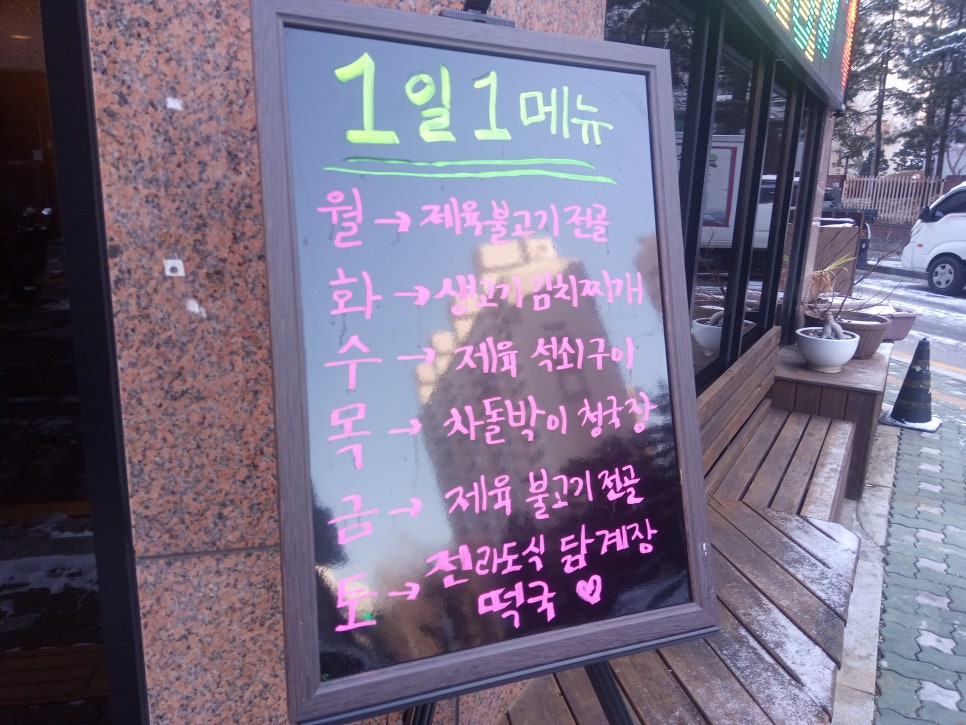 1일1메뉴
월→제육불고기전골
화→생고기김치찌개
수→제육 석쇠구이
목→차돌박이 청국장
금→제육 불고기전골
토→전라도식 닭계장
떡국♡